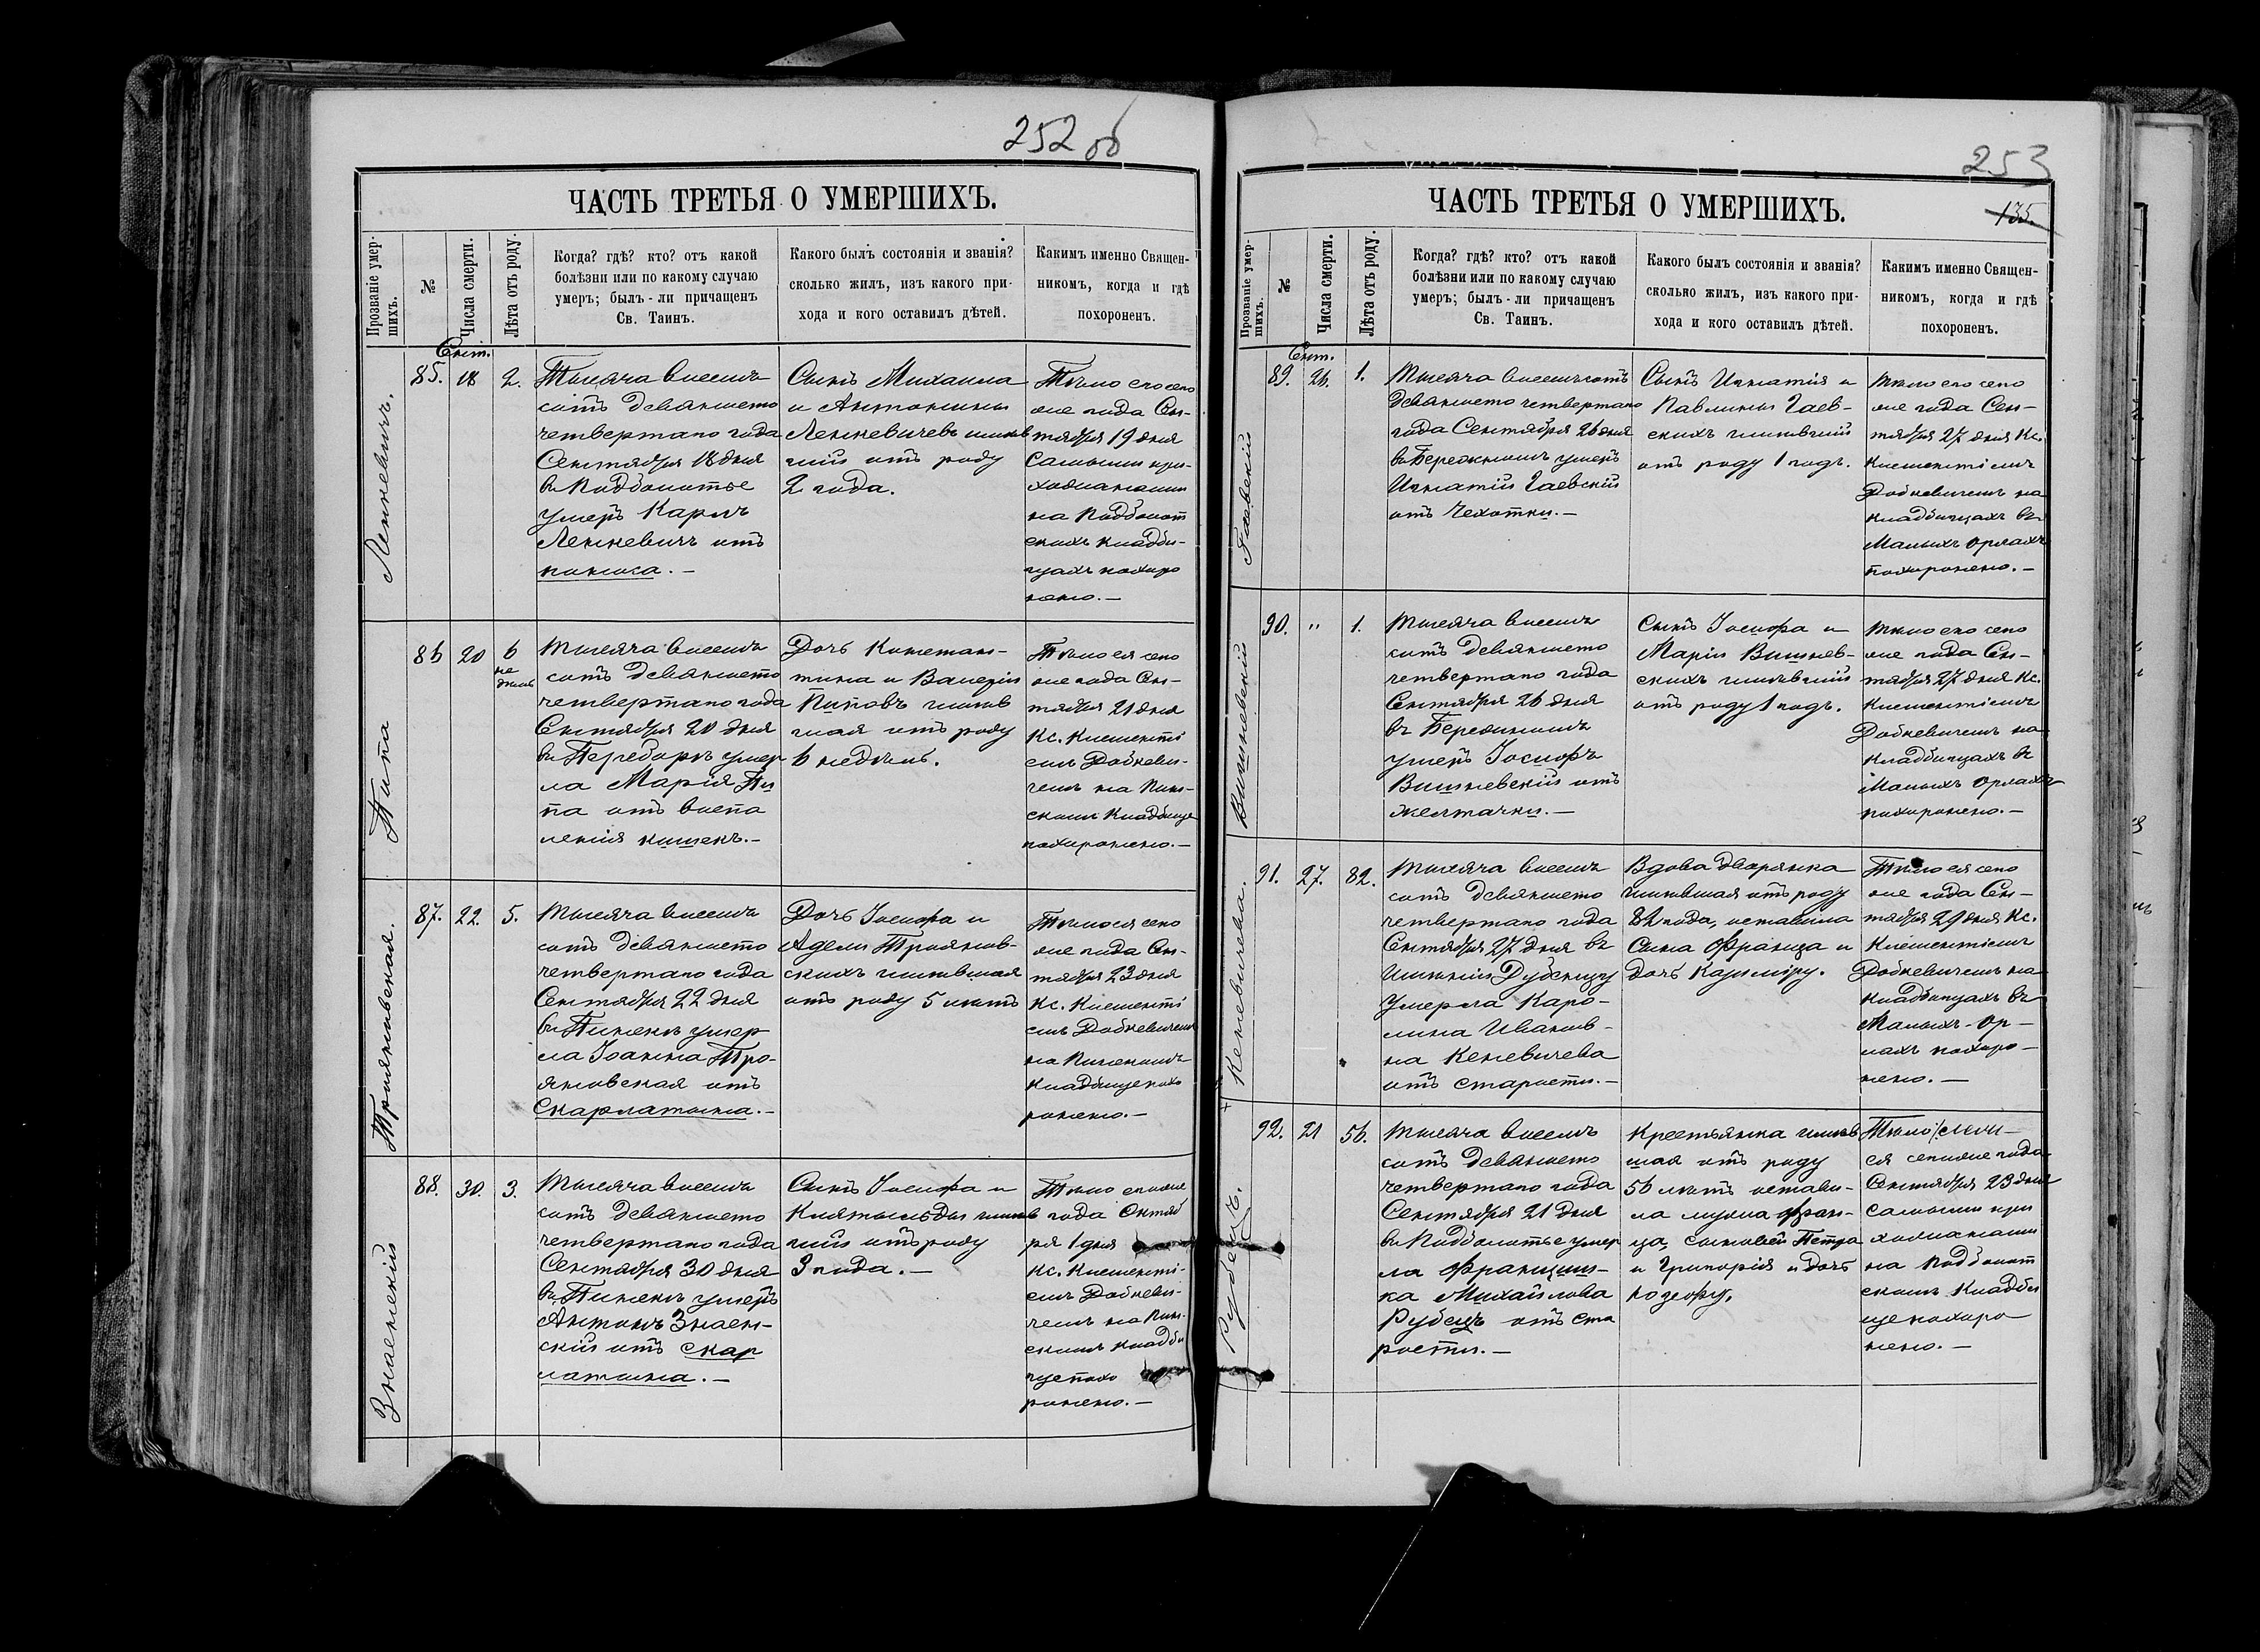 252 об
ЧАСТЬ ТРЕТЬЯ О УМЕРШИХЪ.
Прозваніе умер-
шихъ.
№
Числа смерти.
Лѣта отъ роду.
Когда? гдѣ? кто? отъ какой
болѣзни или по какому случаю
умеръ; былъ-ли причащенъ
Св. Таинъ.
Какого былъ состоянія и званія?
сколько жилъ, изъ какого при-
хода и кого оставилъ дѣтей.
Каким именно Священ-
никомъ, когда и гдѣ
похороненъ.
Ленкевичъ.
Сент.
85. 18 2.
Тысяча восемь
сотъ девяносто
четвертаго года
Сентября 18 дня
въ Подболотье
умеръ Карлъ
Ленкевичъ отъ
поноса. –
Сынъ Михаила
и Антонины
Ленкевичевъ жив
шій отъ роду
2 года.
Тѣло его сего
же года Сен-
тября 19 дня
Самыми при-
хожанами
на Подболот
скихъ кладби-
щахъ похоро
нено. –
Пипа
86 20 6
не
дѣль
Тысяча восемь
сотъ девяносто
четвертаго года
Сентября 20 дня
въ Переборѣ умер
ла Марія Пи
па отъ воспа
ленія кишекъ. –
Дочь Констан-
тина и Валеріи
Пиповъ жив
шая отъ роду
6 недѣль.
Тѣло ея сего
же года Сен-
тября 21 дня
Кс. Клементі
емъ Добкеви-
чемъ на Пин-
скомъ Кладбище
похоронено. –
Трояновская.
87. 22. 5.
Тысяча восемь
сотъ девяносто
четвертаго года
Сентября 22 дня
въ Пинскѣ умер
ла Іоанна Тро-
яновская отъ
Скарлатына. –
Дочь Іосифа и
Адели Трояновскихъ
скихъ жившая
отъ роду 5 лѣтъ
Тѣло ея сего
же года Сен-
тября 23 дня
Кс. Клементі
емъ Добкевичемъ
на Пинскомъ
Кладбище похо
ронено. –
Знаенскій
88. 30. 3.
Тысяча восемь
сотъ девяносто
четвертаго года
Сентября 30 дня
въ Пинскѣ умеръ
Антонъ Знаен-
скій отъ скар
латына. –
Сынъ Іосифа и
Клятыльды жив
шій отъ роду
3 года. –
Тѣло его же
года Октяб
ря 1 дня
Кс. Клементі-
емъ Добкеви-
чемъ на Пин-
скомъ кладби
ще похо
ронено. –
253
135.
ЧАСТЬ ТРЕТЬЯ О УМЕРШИХЪ.
Прозваніе умер-
шихъ.
№
Числа смерти.
Лѣта отъ роду.
Когда? гдѣ? кто? отъ какой
болѣзни или по какому случаю
умеръ; былъ-ли причащенъ
Св. Таинъ.
Какого былъ состоянія и званія?
сколько жилъ, изъ какого при-
хода и кого оставилъ дѣтей.
Каким именно Священ-
никомъ, когда и гдѣ
похороненъ.
Гаевскій
Сент.
89. 26. 1.
Тысяча восемьсотъ
девяносто четвертаго
года Сентября 26 дня
въ Бережномъ умеръ
Игнатій Гаевскій
отъ Чехотки. –
Сынъ Игнатія и
Павлины Гаев-
скихъ жившій
отъ роду 1 годъ.
Тѣло его сего
же года Сен-
тября 27 дня Кс.
Клементіемъ
Добкевичемъ на
кладбищахъ въ
Малыхъ Орлахъ
похоронено. –
Вишневскій
90. " 1.
Тысяча восемь
сотъ девяносто
четвертаго года
Сентября 26 дня
въ Бережномъ
умеръ Іосифъ
Вишневскій отъ
желтачки. –
Сынъ Іосифа и
Маріи Вишнев-
скихъ жившій
отъ роду 1 годъ.
Тѣло его сего
же года Сен-
тября 27 дня Кс.
Клементіемъ
Добкевичемъ на
кладбищахъ въ
Малыхъ Орлахъ
похоронено. –
Кеневичева.
91. 27. 82.
Тысяча восемь
сотъ девяносто
четвертаго года
Сентября 27 дня въ
Дубенцу
умерла Каро-
лина Иванов-
на Кеневичева
отъ старости. –
Вдова Дворянка
жившая отъ роду
82 года, оставила
Сына Франца и
дочь Казиміру.
Тѣло ея сего
же года Сен-
тября 29 дня Кс.
Клементіемъ
Добкевичемъ на
кладбищахъ въ
Малыхъ-Ор-
лахъ похоро-
нено. –
Рубецъ.
92. 21 56.
Тысяча восемь
сотъ девяносто
четвертаго года
Сентября 21 дня
въ Подболотье умер
ла Франциш-
ка Михайлова
Рубецъ отъ ста
рости. –
Крестьянка жив
шая отъ роду
56 лѣтъ остави-
ла мужа Фран-
ца, сыновей Петра
и Григорія и дочь
Розефу.
Тѣло
ея сего же года
Сентября 23 дня
Самыми при
хожанами
на Подболот
скомъ Кладби
ще похоро
нено. –